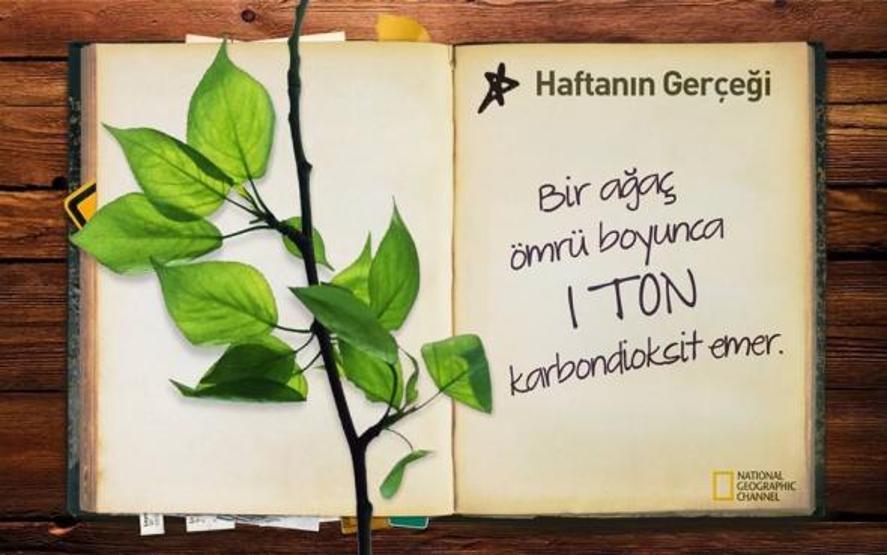 Haftanın Gerçeği
Bir ağaç
ömrü boyunca
1 TON
karbondioksit emer.
NATIONAL
GEOGRAPHIC
CHANNEL